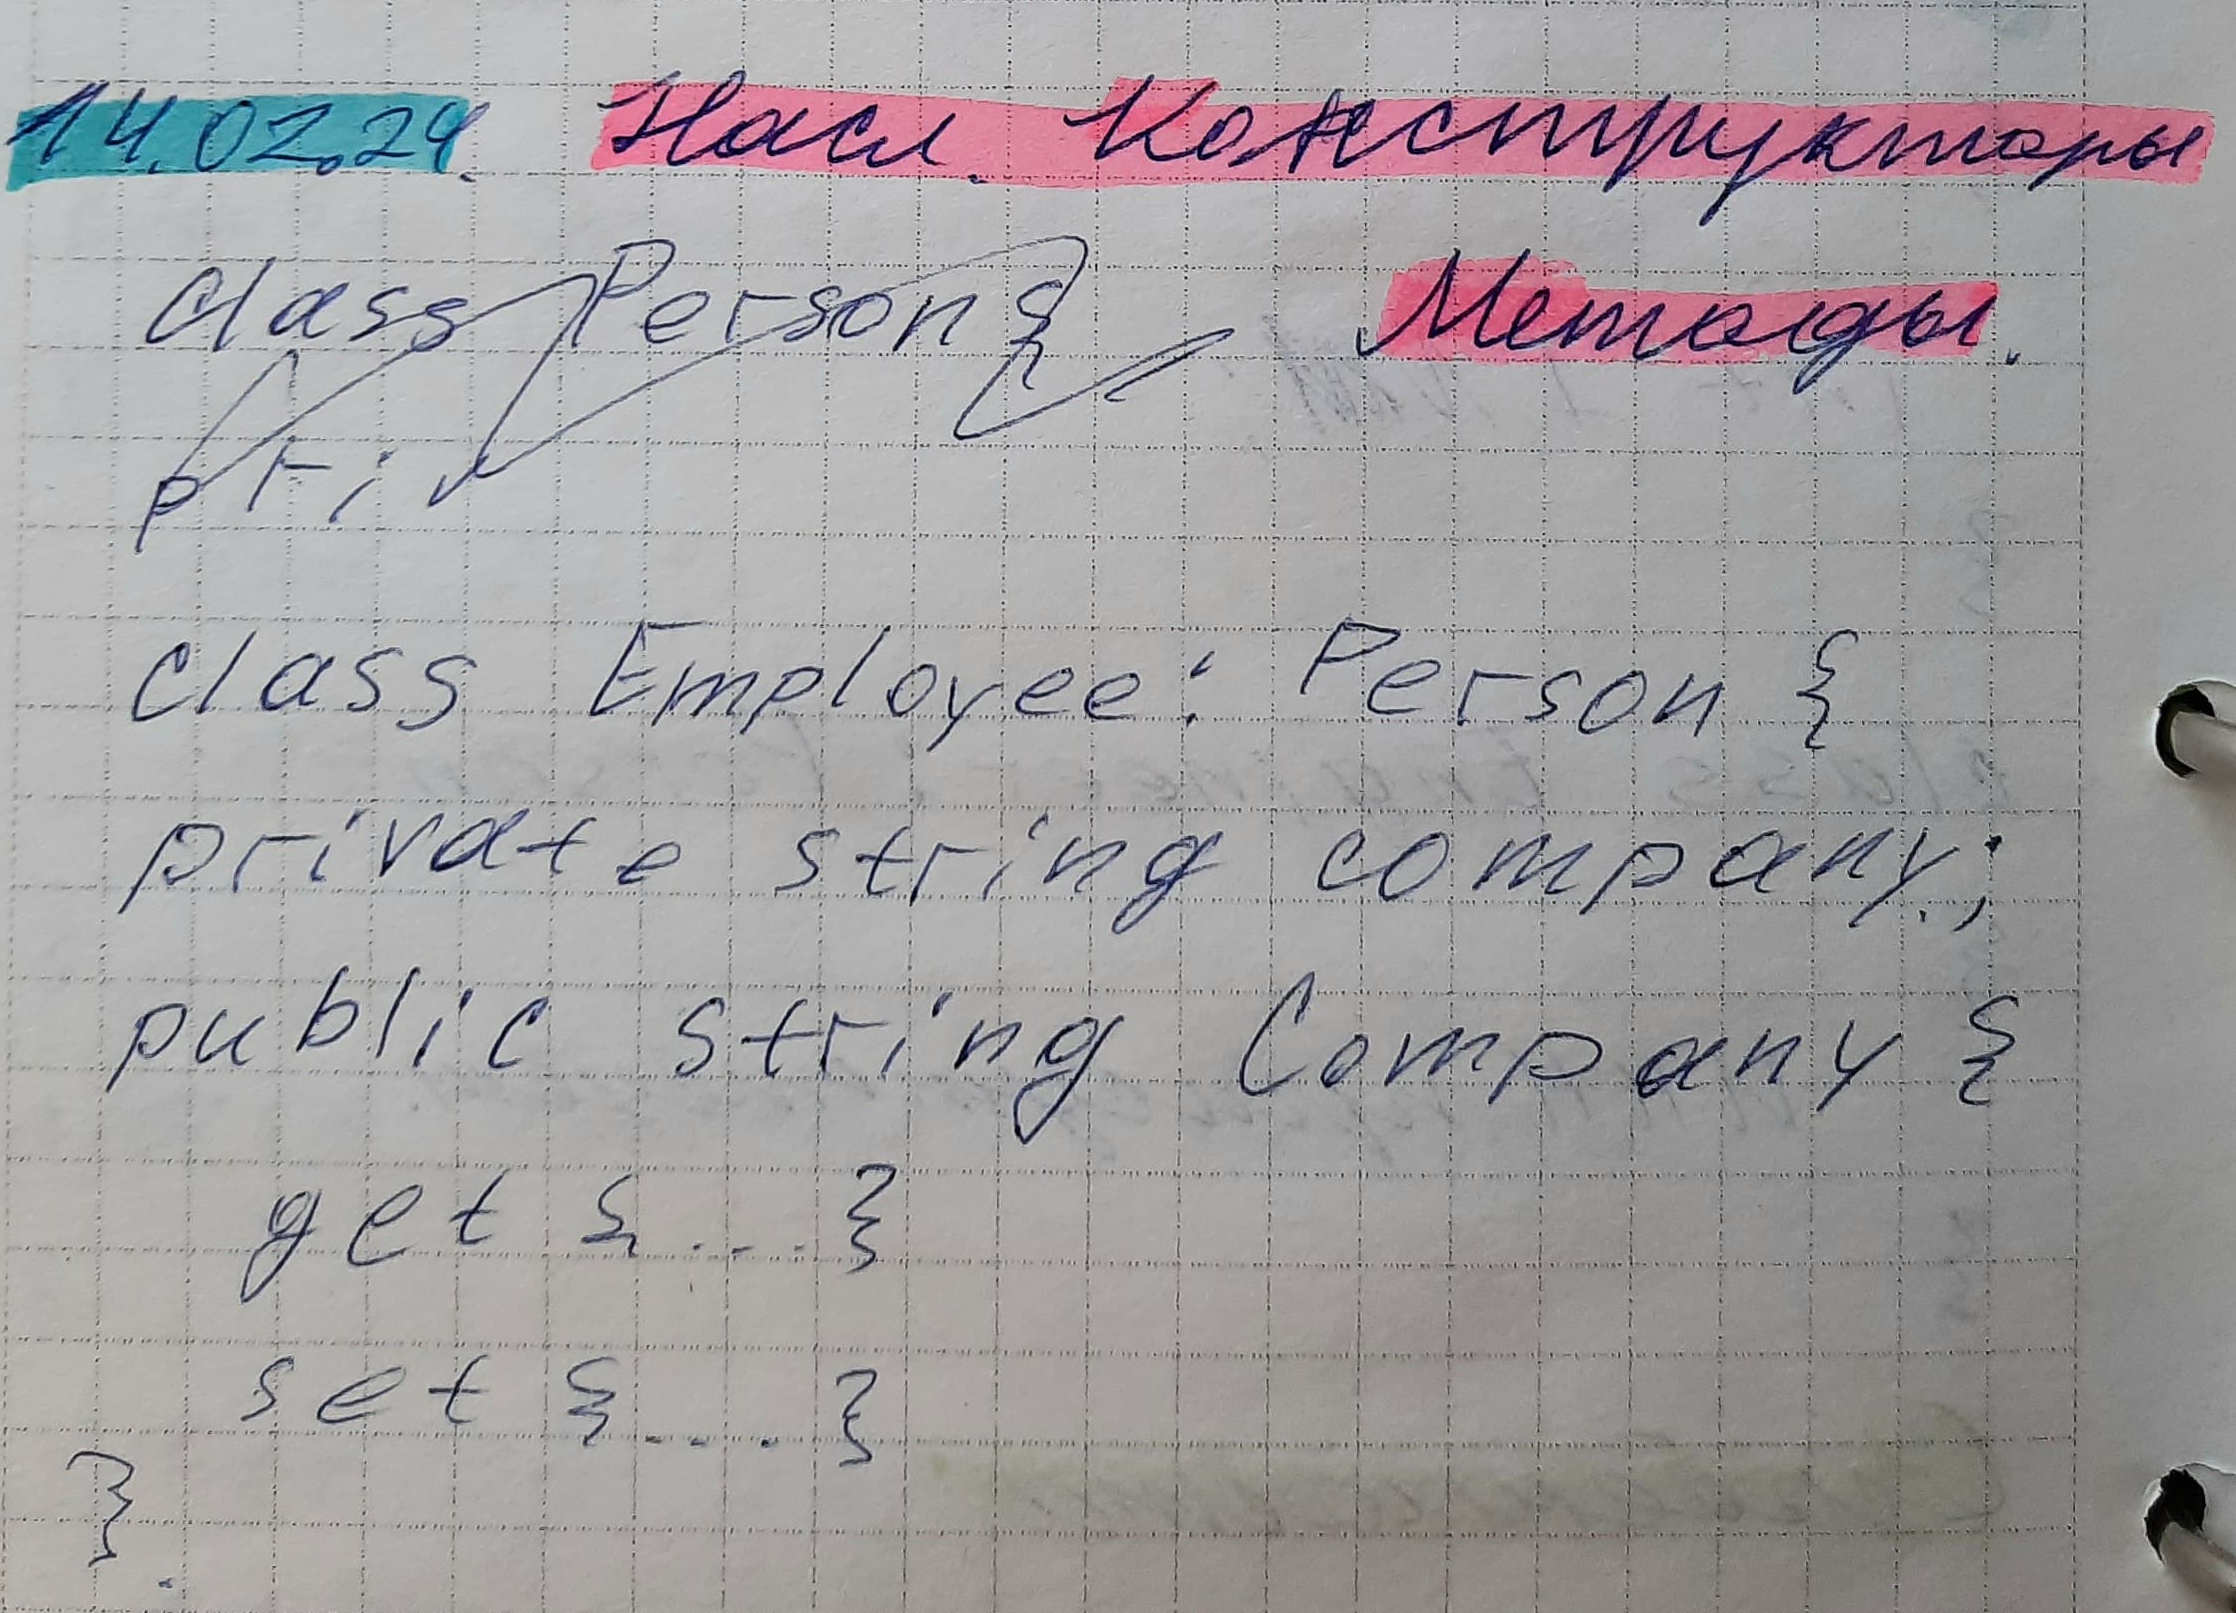 14.02.24. Насл. Конструкторы
Методы.
class Person {
priv
class Employee: Person {
private string company;
public string Company {
get {...}
set {...}
}